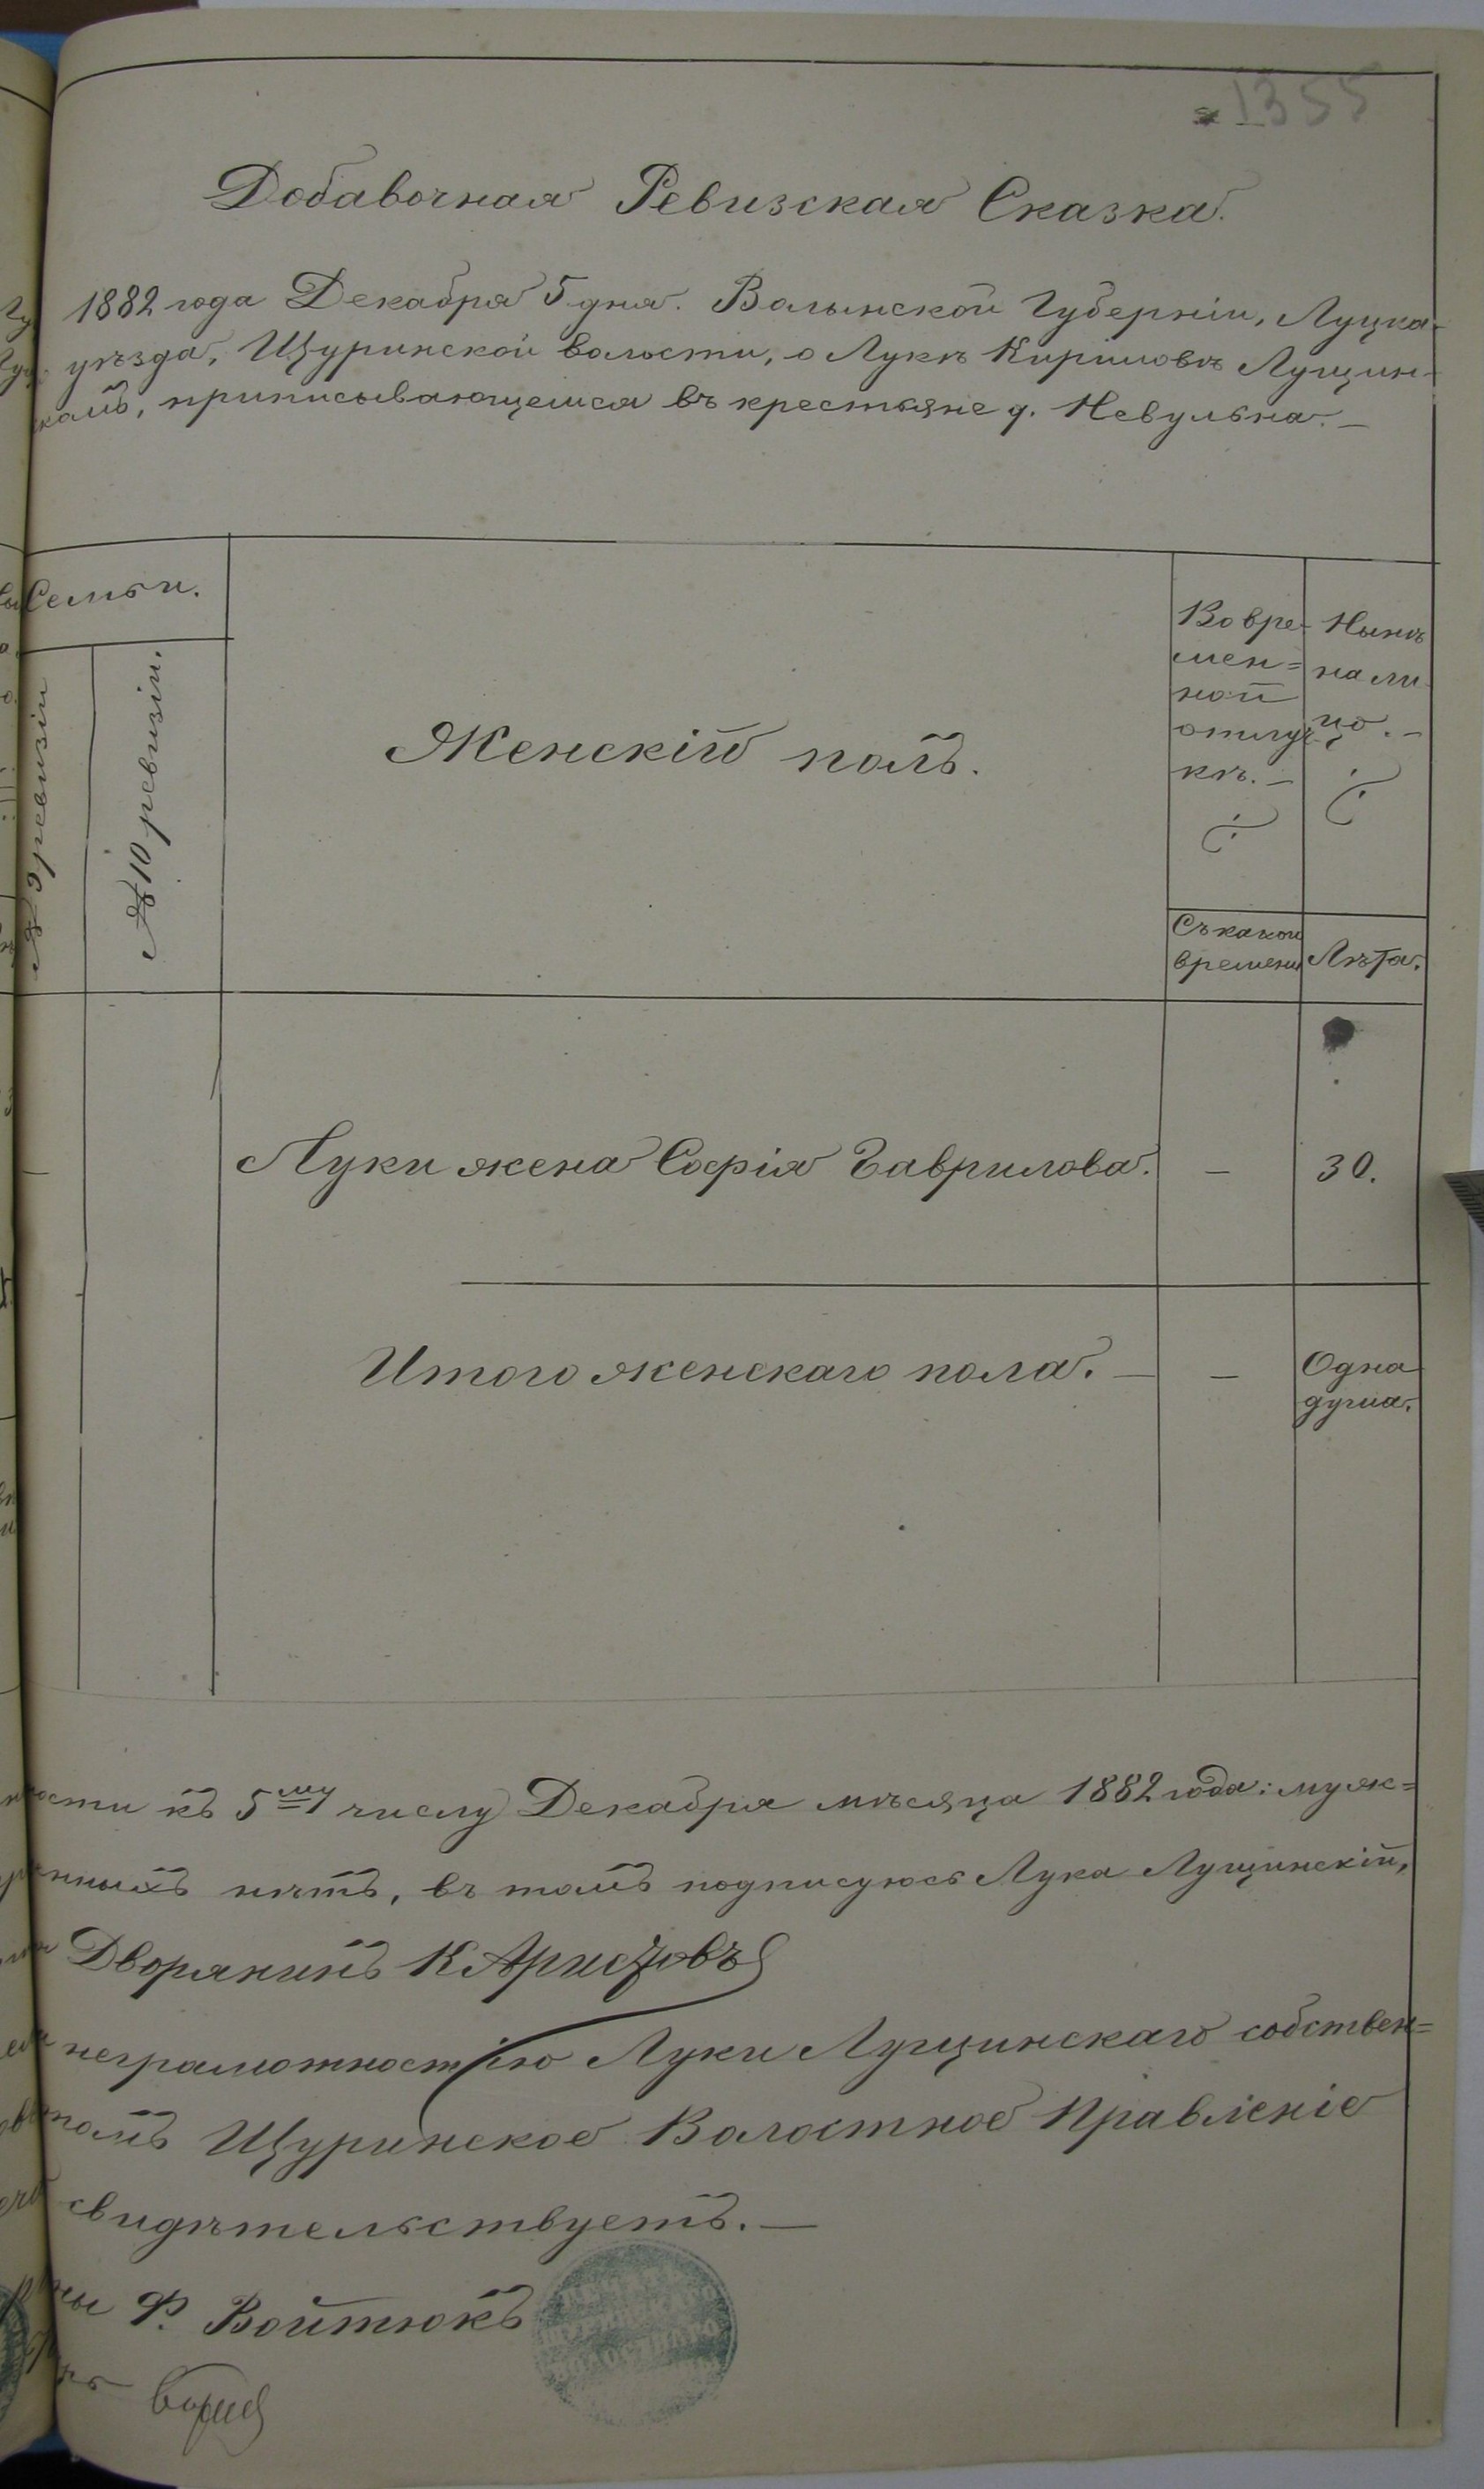 1355
Добавочная Ревизская Сказка.
1882 года Декабря 5 дня. Волынской Губерніи, Луцка-
уѣзда, Щуринской волости, о Лукѣ Кириловѣ Лущин-
скомъ, приписывающемся въ крестьяне д. Невульна. —
Семьи.
№ 9 ревизіи
№ 10 ревизіи.
Женскій полъ.
Во вре-
мен=
ной
отлуч
кѣ. —
Нынѣ
на ли
цо. —
Съ какого
времени
Лѣта.
Луки жена Софія Гаврилова. — 30.
Итого женскаго пола. — — Одна
душа.
ности къ 5му числу Декабря мѣсяца 1882 года: муж=
нныхъ нѣтъ, въ томъ подписуюсь Лука Лущинскій,
Дворянинъ К Аристовъ
неграмотностію Луки Лущинскаго собствен=
номъ Щуринское Волостное Правленіе
свидѣтельствуетъ. —
ны Ф. Войтюкъ